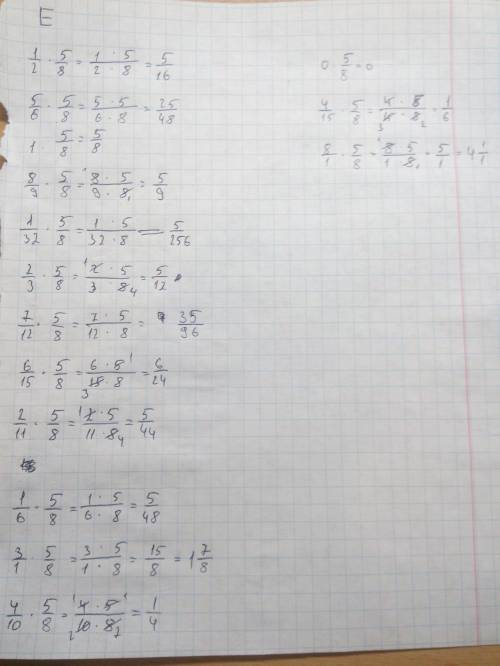 E
1/2 · 5/8 = 1 · 5/2 · 8 = 5/16
5/6 · 5/8 = 5 · 5/6 · 8 = 25/48
1 · 5/8 = 5/8
8/9 · 5/8 = ¹8 · 5/9 · 8₁ = 5/9
1/32 · 5/8 = 1 · 5/32 · 8 = 5/256
2/3 · 5/8 = ¹2 · 5/3 · 8₄ = 5/12
7/12 · 5/8 = 7 · 5/12 · 8 = 35/96
6/15 · 5/8 = 6 · 5¹/₃15 · 8 = 6/24
2/11 · 5/8 = ¹2 · 5/11 · 8₄ = 5/44
1/6 · 5/8 = 1 · 5/6 · 8 = 5/48
3/1 · 5/8 = 3 · 5/1 · 8 = 15/8 = 1 7/8
4/10 · 5/8 = ¹4 · 5¹/₂10 · 8₂ = 1/4
0 · 5/8 = 0
4/15 · 5/8 = 4 · 5/₃15 · 8₂ = 1/6
8/1 · 5/8 = ¹8 · 5/1 · 8₁ = 5/1 = 4 1/1